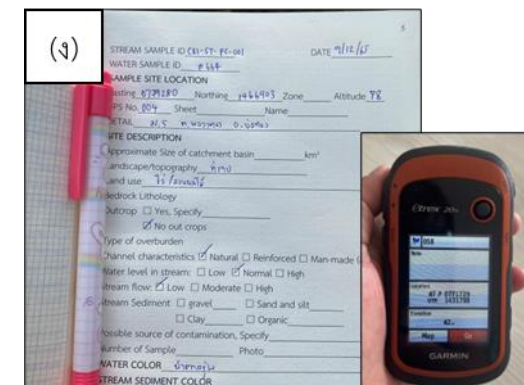 (ง)
5
STREAM SAMPLE ID CRI-ST-PC-001 DATE 9/12/65
WATER SAMPLE ID
SAMPLE SITE LOCATION
Easting 0779280 Northing 1466903 Zone Altitude 78
GPS No. 004 Sheet Name
DETAIL
SITE DESCRIPTION
Approximate Size of catchment basin km²
Landscape/topography
Land use
Bedrock Lithology
Outcrop □ Yes, Specify
☑ No out crops
Type of overburden
Channel characteristics ☑ Natural □ Reinforced □ Man-made
Water level in stream: □ Low ☑ Normal □ High
Stream flow: ☑ Low □ Moderate □ High
Stream Sediment □ gravel □ Sand and silt
□ Clay □ Organic
Possible source of contamination, Specify
Number of Sample Photo
WATER COLOR
STREAM SEDIMENT COLOR
etrex 20x
058
Note
Location
47 P 0771729
UTM 1431798
Elevation
Map Go
GARMIN